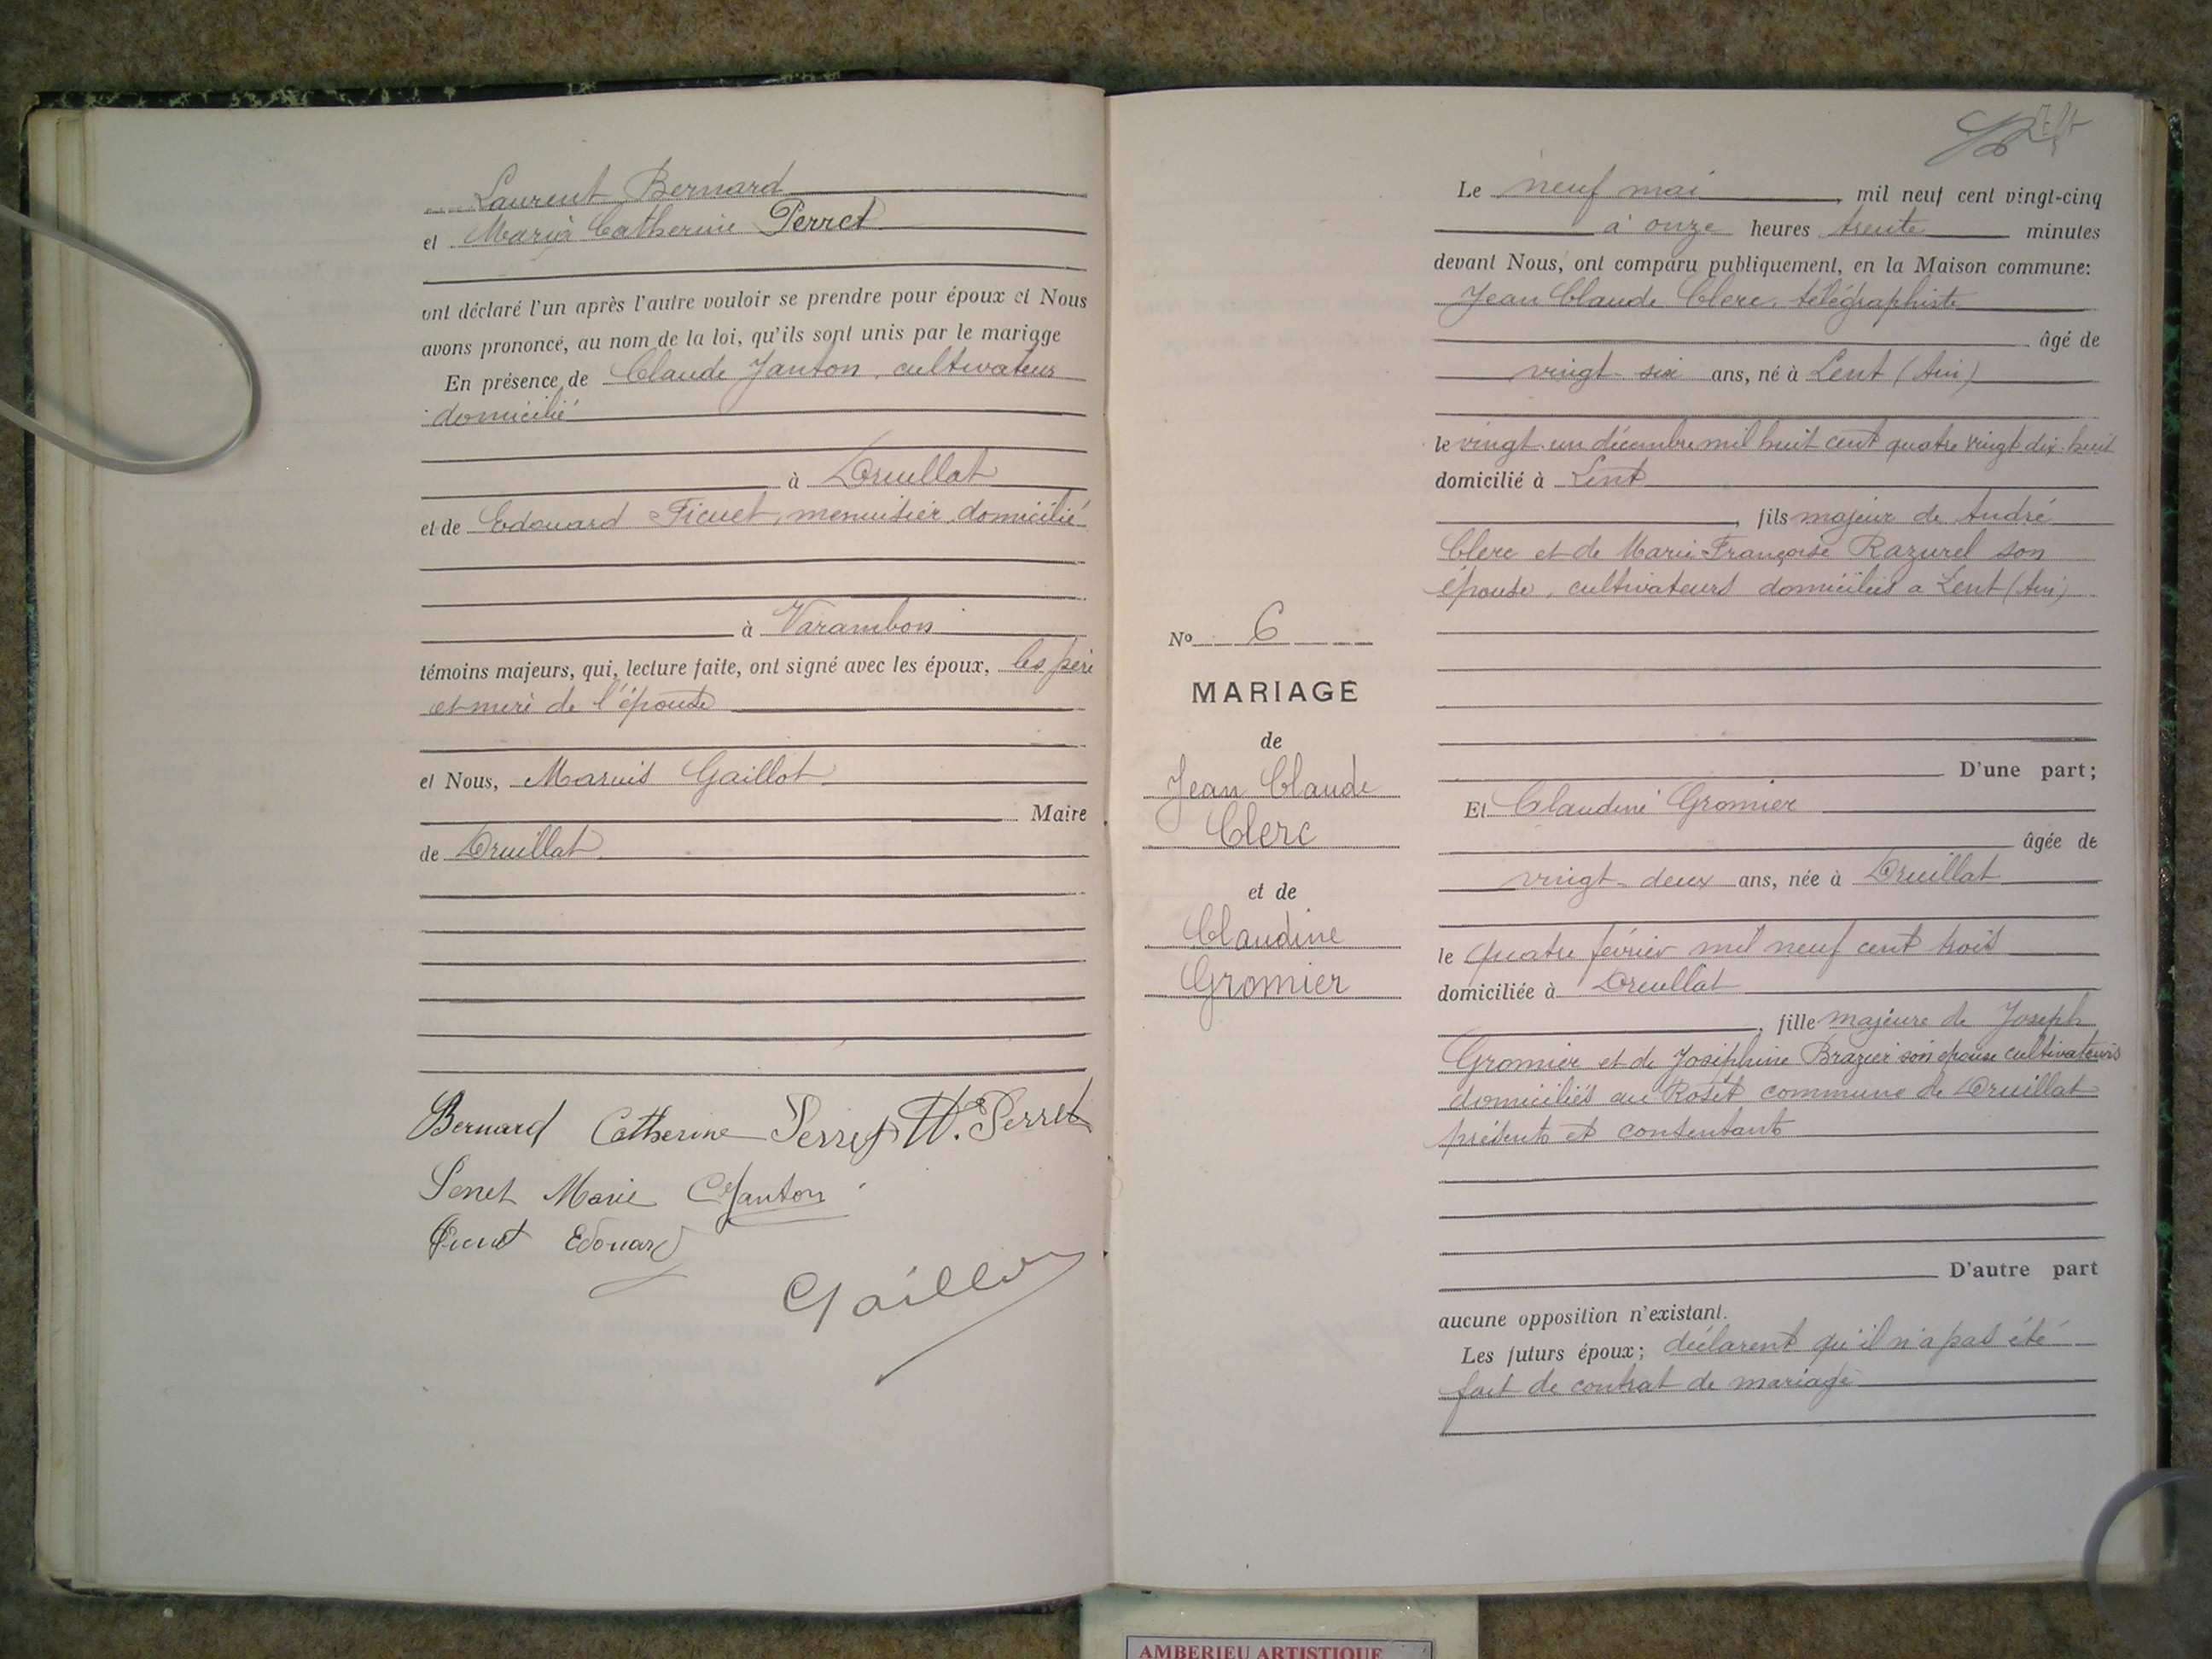 Laurent Bernard
et Maria Catherine Perret
ont déclaré l'un après l'autre vouloir se prendre pour époux et Nous
avons prononcé, au nom de la loi, qu'ils sont unis par le mariage
En présence de Claude Janton, cultivateur
domicilié
à Druillat
et de Edouard Ficuet, menuisier, domicilié
à Varambon
témoins majeurs, qui, lecture faite, ont signé avec les époux, les père
et mère de l'épouse
et Nous, Marius Gaillot
Maire
de Druillat
Bernard Catherine Perret Perret
Marie CJanton
Edouard
Gaillot
Le neuf mai, mil neuf cent vingt-cinq
à onze heures trente minutes
devant Nous, ont comparu publiquement, en la Maison commune:
Jean Claude Clerc, télégraphiste
âgé de
vingt-six ans, né à Lent (Ain)
le vingt-un décembre mil huit cent quatre vingt dix-huit
domicilié à Lent
, fils majeur de André
Clerc et de Marie-Françoise Razurel son
épouse, cultivateurs domiciliés à Lent (Ain)
D'une part;
Et Claudine Gromier
âgée de
vingt-deux ans, née à Druillat
le quatre février mil neuf cent trois
domiciliée à Druillat
, fille majeure de Joseph
Gromier et de Joséphine Brazier son épouse cultivateurs
domiciliés au Roset commune de Druillat
présents et consentants
D'autre part
aucune opposition n'existant.
Les futurs époux; déclarent qu'il n'a pas été
fait de contrat de mariage
No 6
MARIAGE
de
Jean Claude
Clerc
et de
Claudine
Gromier
AMBERIEU ARTISTIQUE